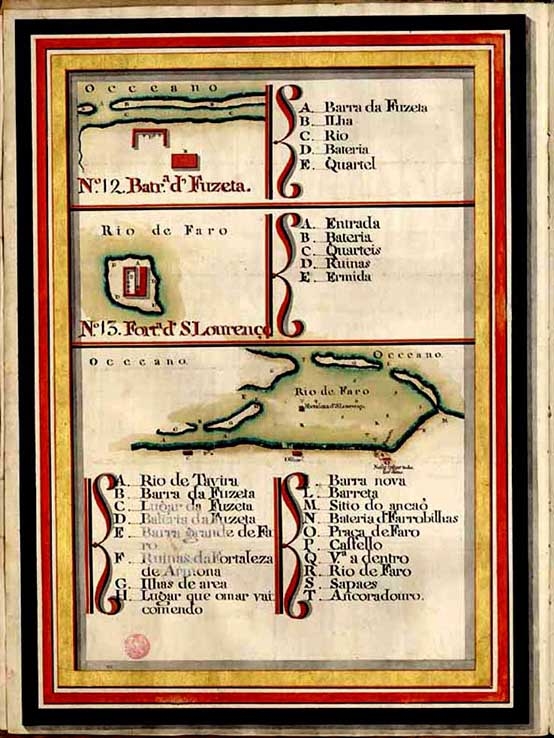 Occeano
A. Barra da Fuzeta
B. Ilha
C. Rio
D. Bateria
E. Quartel
N.º 12. Batr.ª d' Fuzeta.
Rio de Faro
A. Entrada
B. Bateria
C. Quarteis
D. Ruinas
E. Ermida
N.º 13. Fort.ª d' S Lourenço
Occeano.
Occeano.
Rio de Faro
Olhaõ
A. Rio de Tavira
B. Barra da Fuzeta
C. Lugar da Fuzeta
D. Bateria da Fuzeta
E. Barra grande de Fa
ro
F. Ruinas da Fortaleza
de Armona
G. Ilhas de area
H. Lugar que omar vai
comendo
I. Barra nova
L. Barreta
M. Sitio do ancaõ
N. Bateria d'Farrobilhas
O. Praça de Faro
P. Castello
Q. Vª a dentro
R. Rio de Faro
S. Sapaes
T. Ancoradouro.